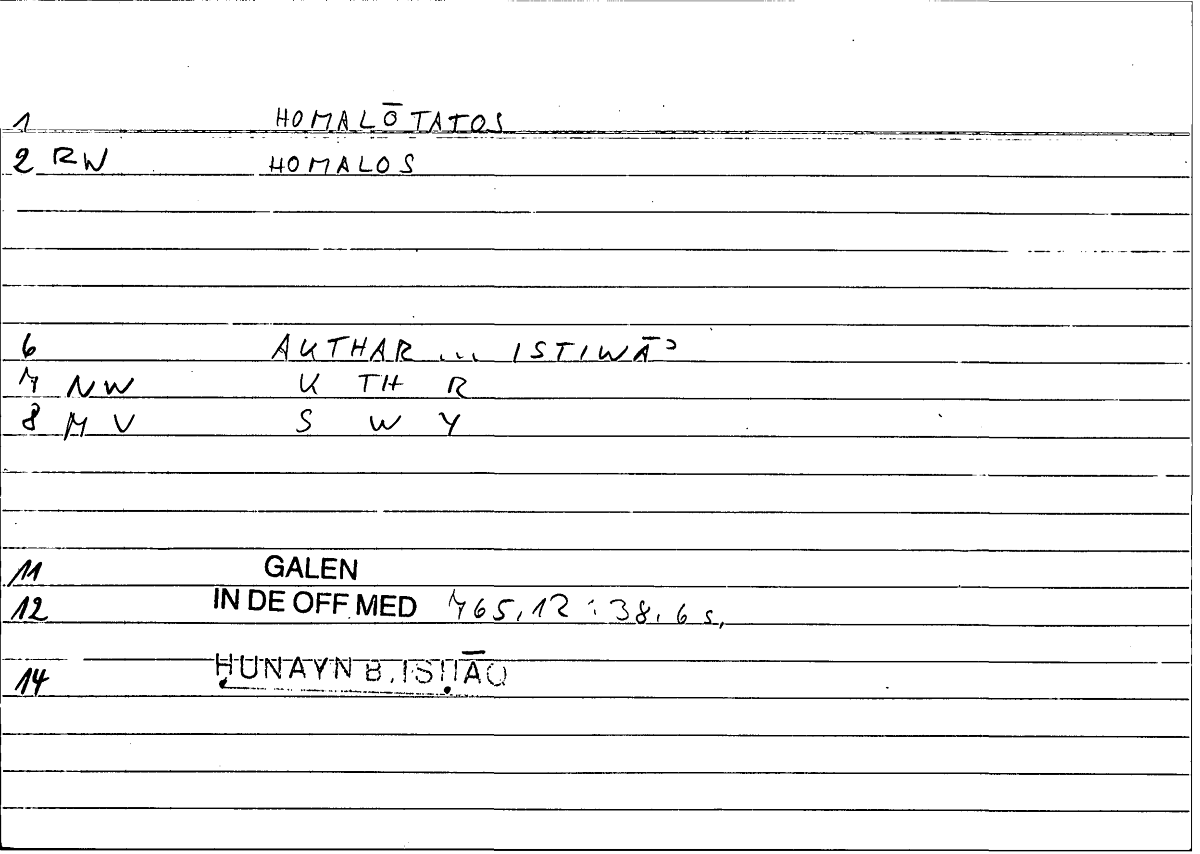 1 HOMALŌTATOS
2 RW HOMALOS
6 AKTHAR ... ISTIWĀʾ
7 NW K TH R
8 MV S W Y
11 GALEN
12 IN DE OFF MED 765,12 : 38,6 s,
14 ḤUNAYN B. ISḤĀQ